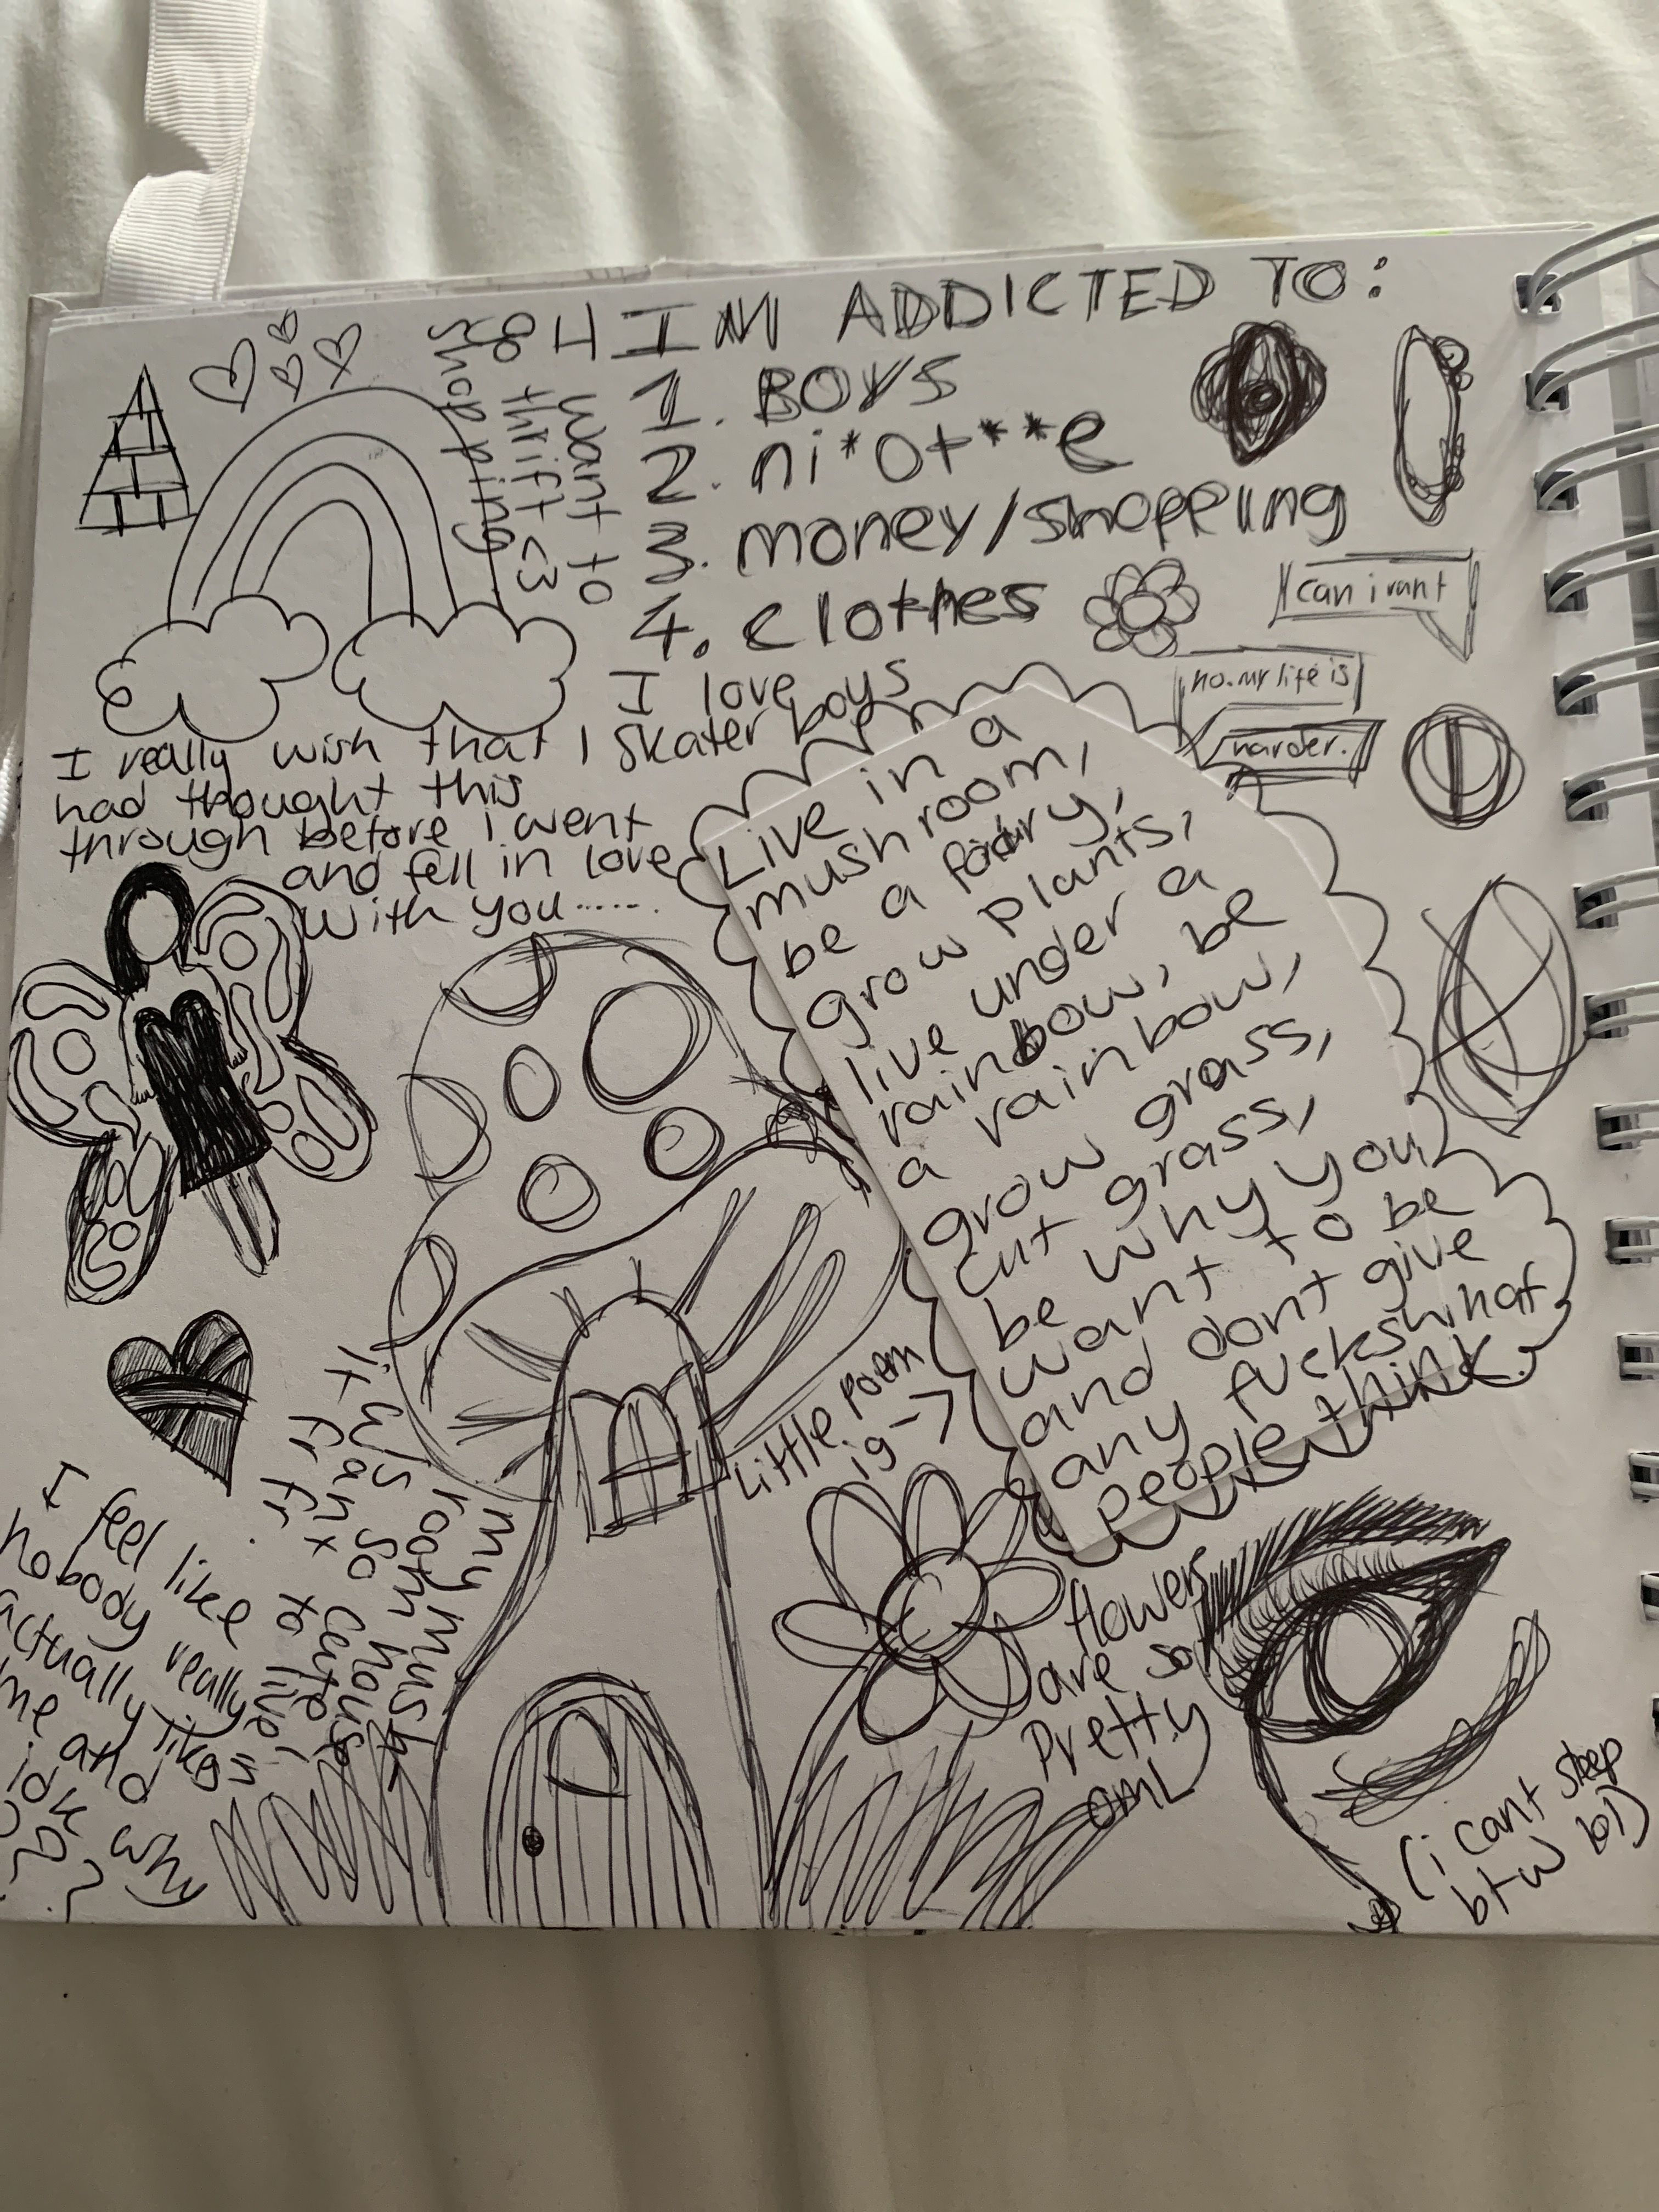 I AM ADDICTED TO:
1. BOYS
2. ni*ot**e
3. money/shopping
4. clothes
want to
thrift <3
shopping
I love
skater boys
can i vant
no. my life is
harder.
I really wish that I
had thought this
through before i went
and fell in love
with you......
Live in a
mushroom,
be a fairy,
grow plants,
live under a
rainbow, be
a rainbow,
grow grass,
cut grass,
be why you
want to be
and dont give
any fucks what
people think.
Little poem
ig ->
my mush
room house
is so cute
i want to live in
it fr fr.
I feel like
nobody really
actually likes
me and
idk why
???
flowers
are so
Pretty
omL
(i cant sleep
btw bl)